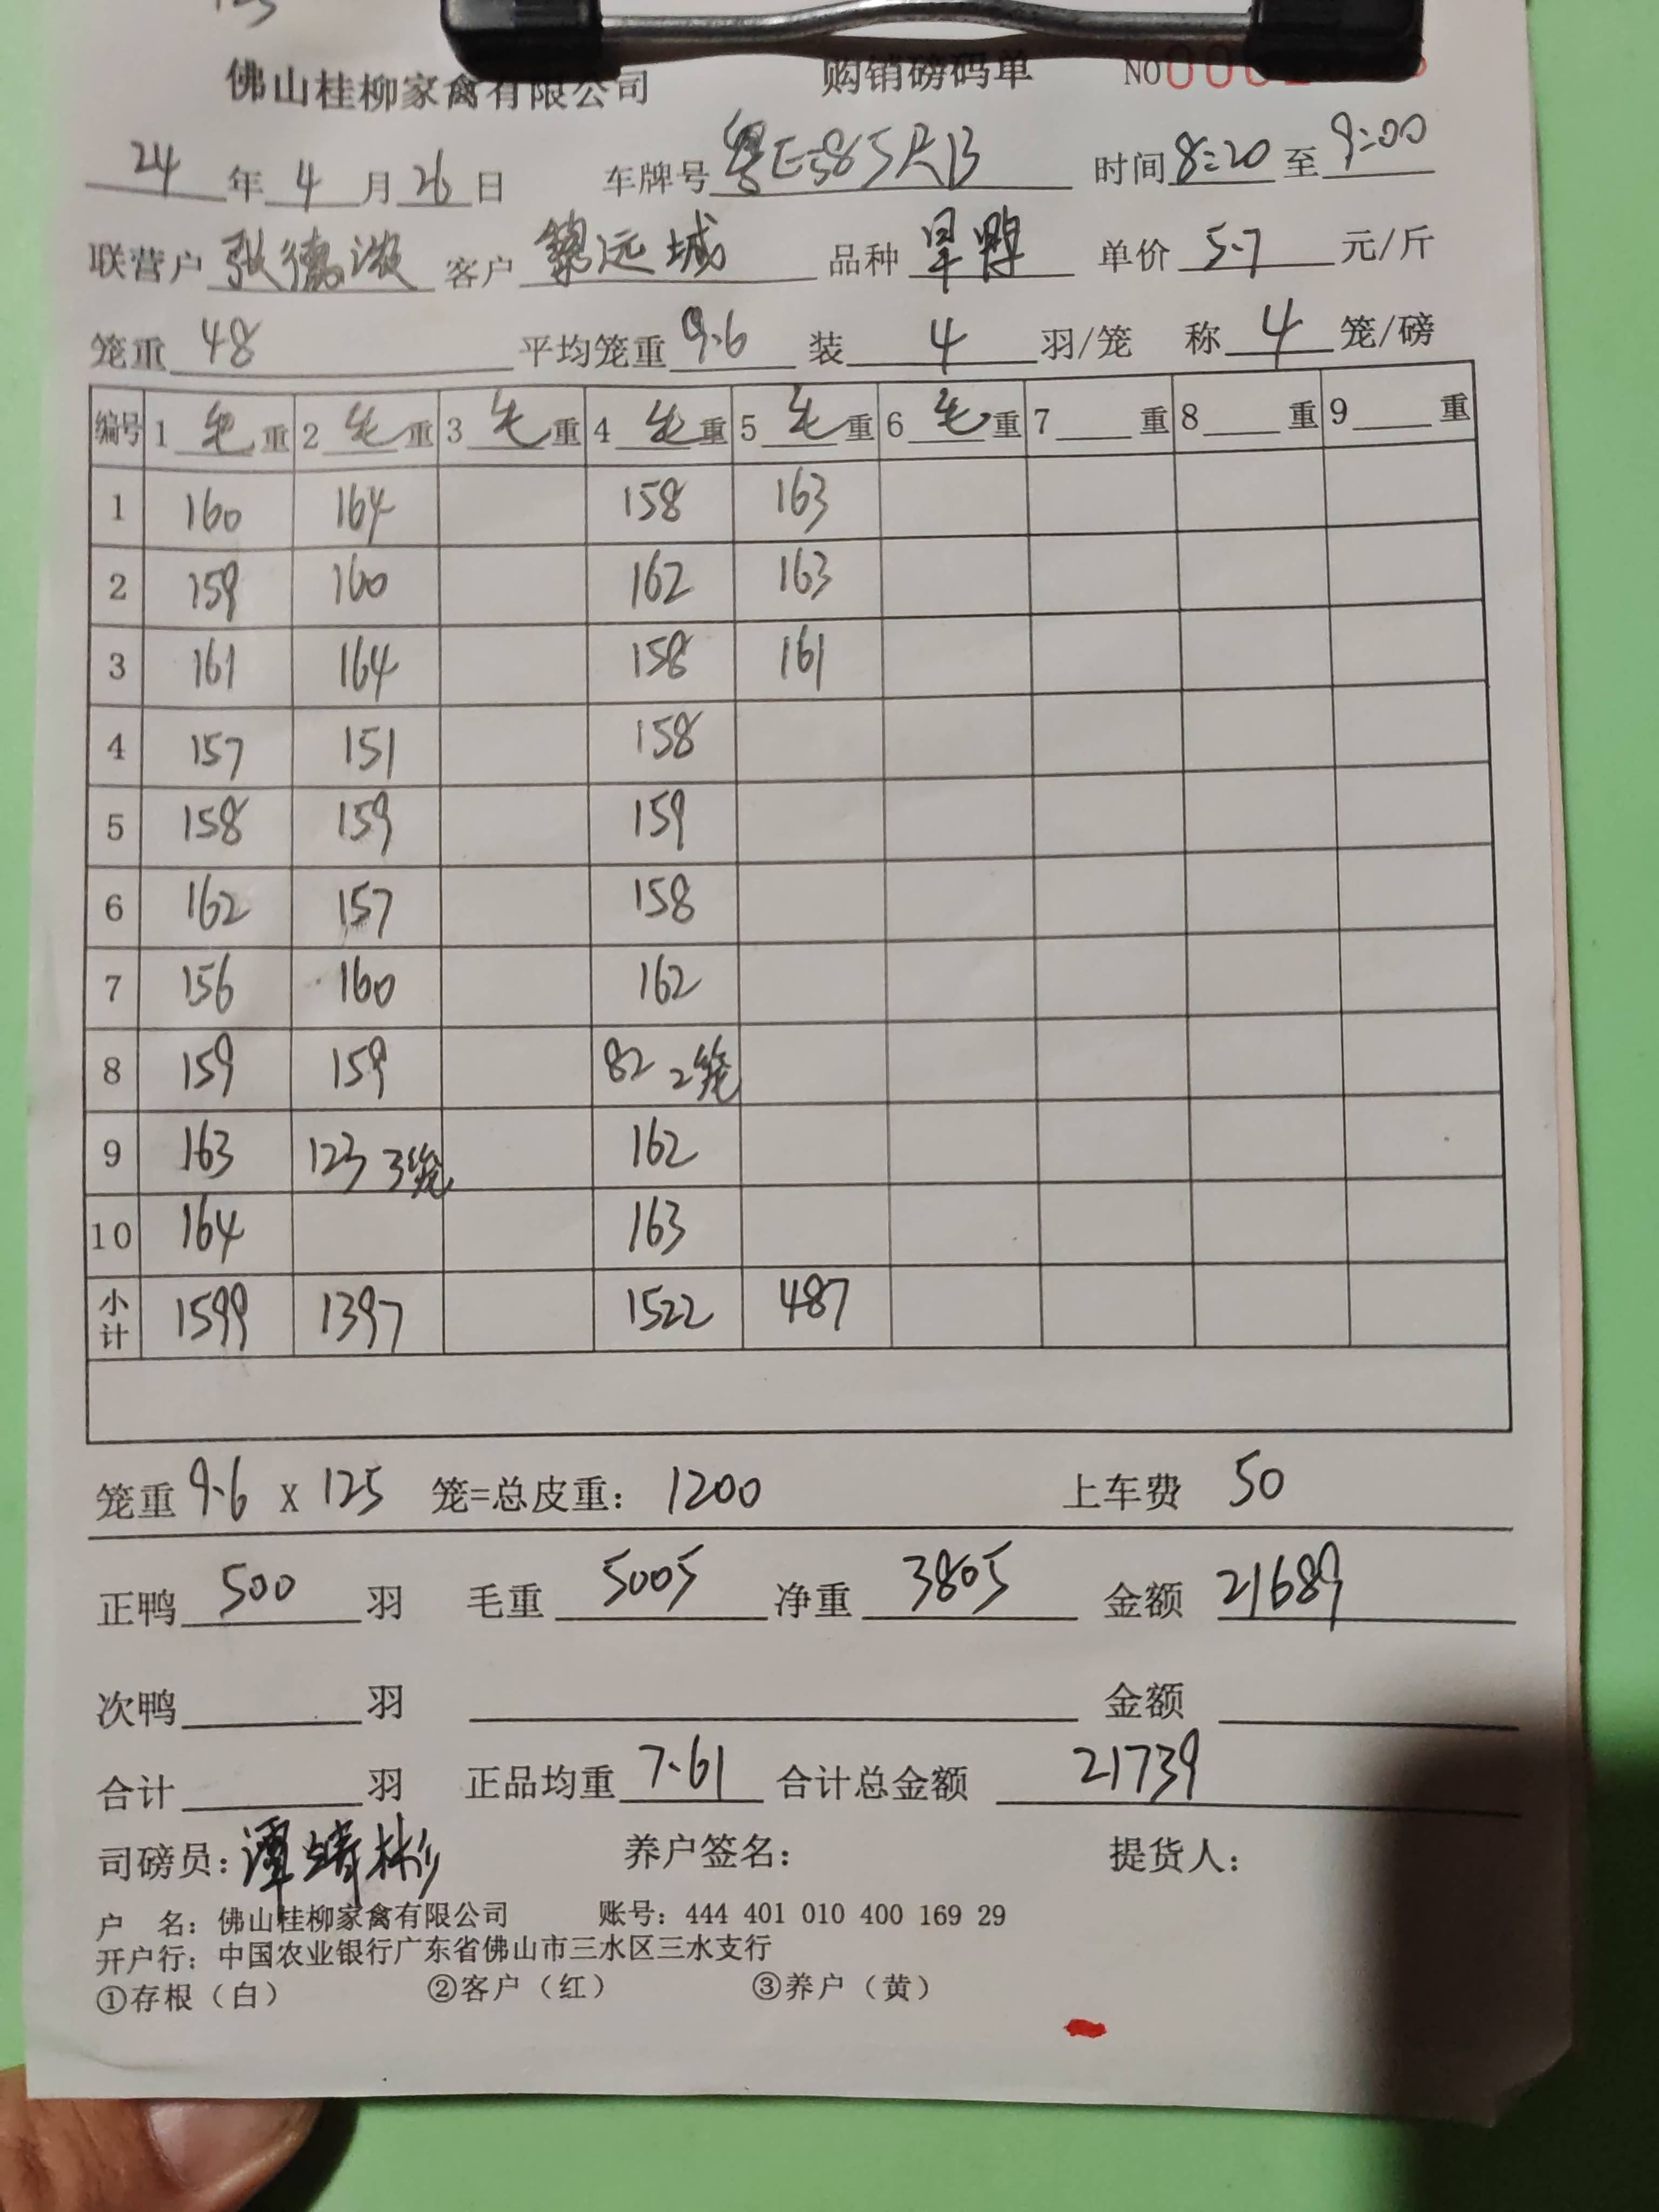 佛山桂柳家禽有限公司 购销磅码单 NO
24 年 4 月 26 日 车牌号 粤E585RB 时间 8:20 至 9:00
联营户 张德 客户 黎远城 品种 旱鸭 单价 5.7 元/斤
笼重 48 平均笼重 9.6 装 4 羽/笼 称 4 笼/磅
编号 1 毛重 2 毛重 3 毛重 4 毛重 5 毛重 6 毛重 7 重 8 重 9 重
1 160 164 158 163
2 159 160 162 163
3 161 164 158 161
4 157 151 158
5 158 159 159
6 162 157 158
7 156 160 162
8 159 159 82 2笼
9 163 123 3笼 162
10 164 163
小计 1599 1397 1522 487
笼重 9.6 X 125 笼=总皮重: 1200 上车费 50
正鸭 500 羽 毛重 5005 净重 3805 金额 21689
次鸭 羽 金额
合计 羽 正品均重 7.61 合计总金额 21739
司磅员: 谭靖彬 养户签名: 提货人:
户 名: 佛山桂柳家禽有限公司 账号: 444 401 010 400 169 29
开户行: 中国农业银行广东省佛山市三水区三水支行
①存根（白） ②客户（红） ③养户（黄）